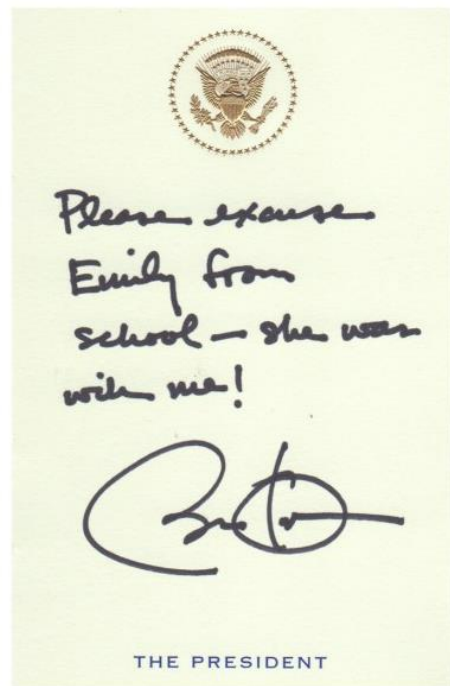 Please excuse
Emily from
school — she was
with me!
THE PRESIDENT